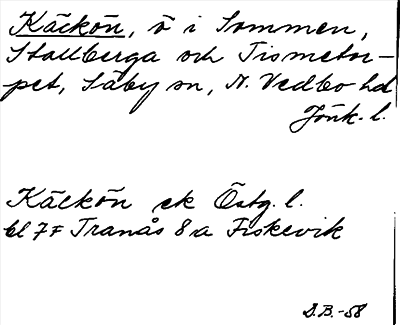 Käckön, ö i Sommen,
Stallberga och Tismetor-
pet, Säby sn, N. Vedbo hd
Jönk. l.
Käckön ek Östg. l.
bl 7F Tranås 8a Fiskevik
D.B.-58